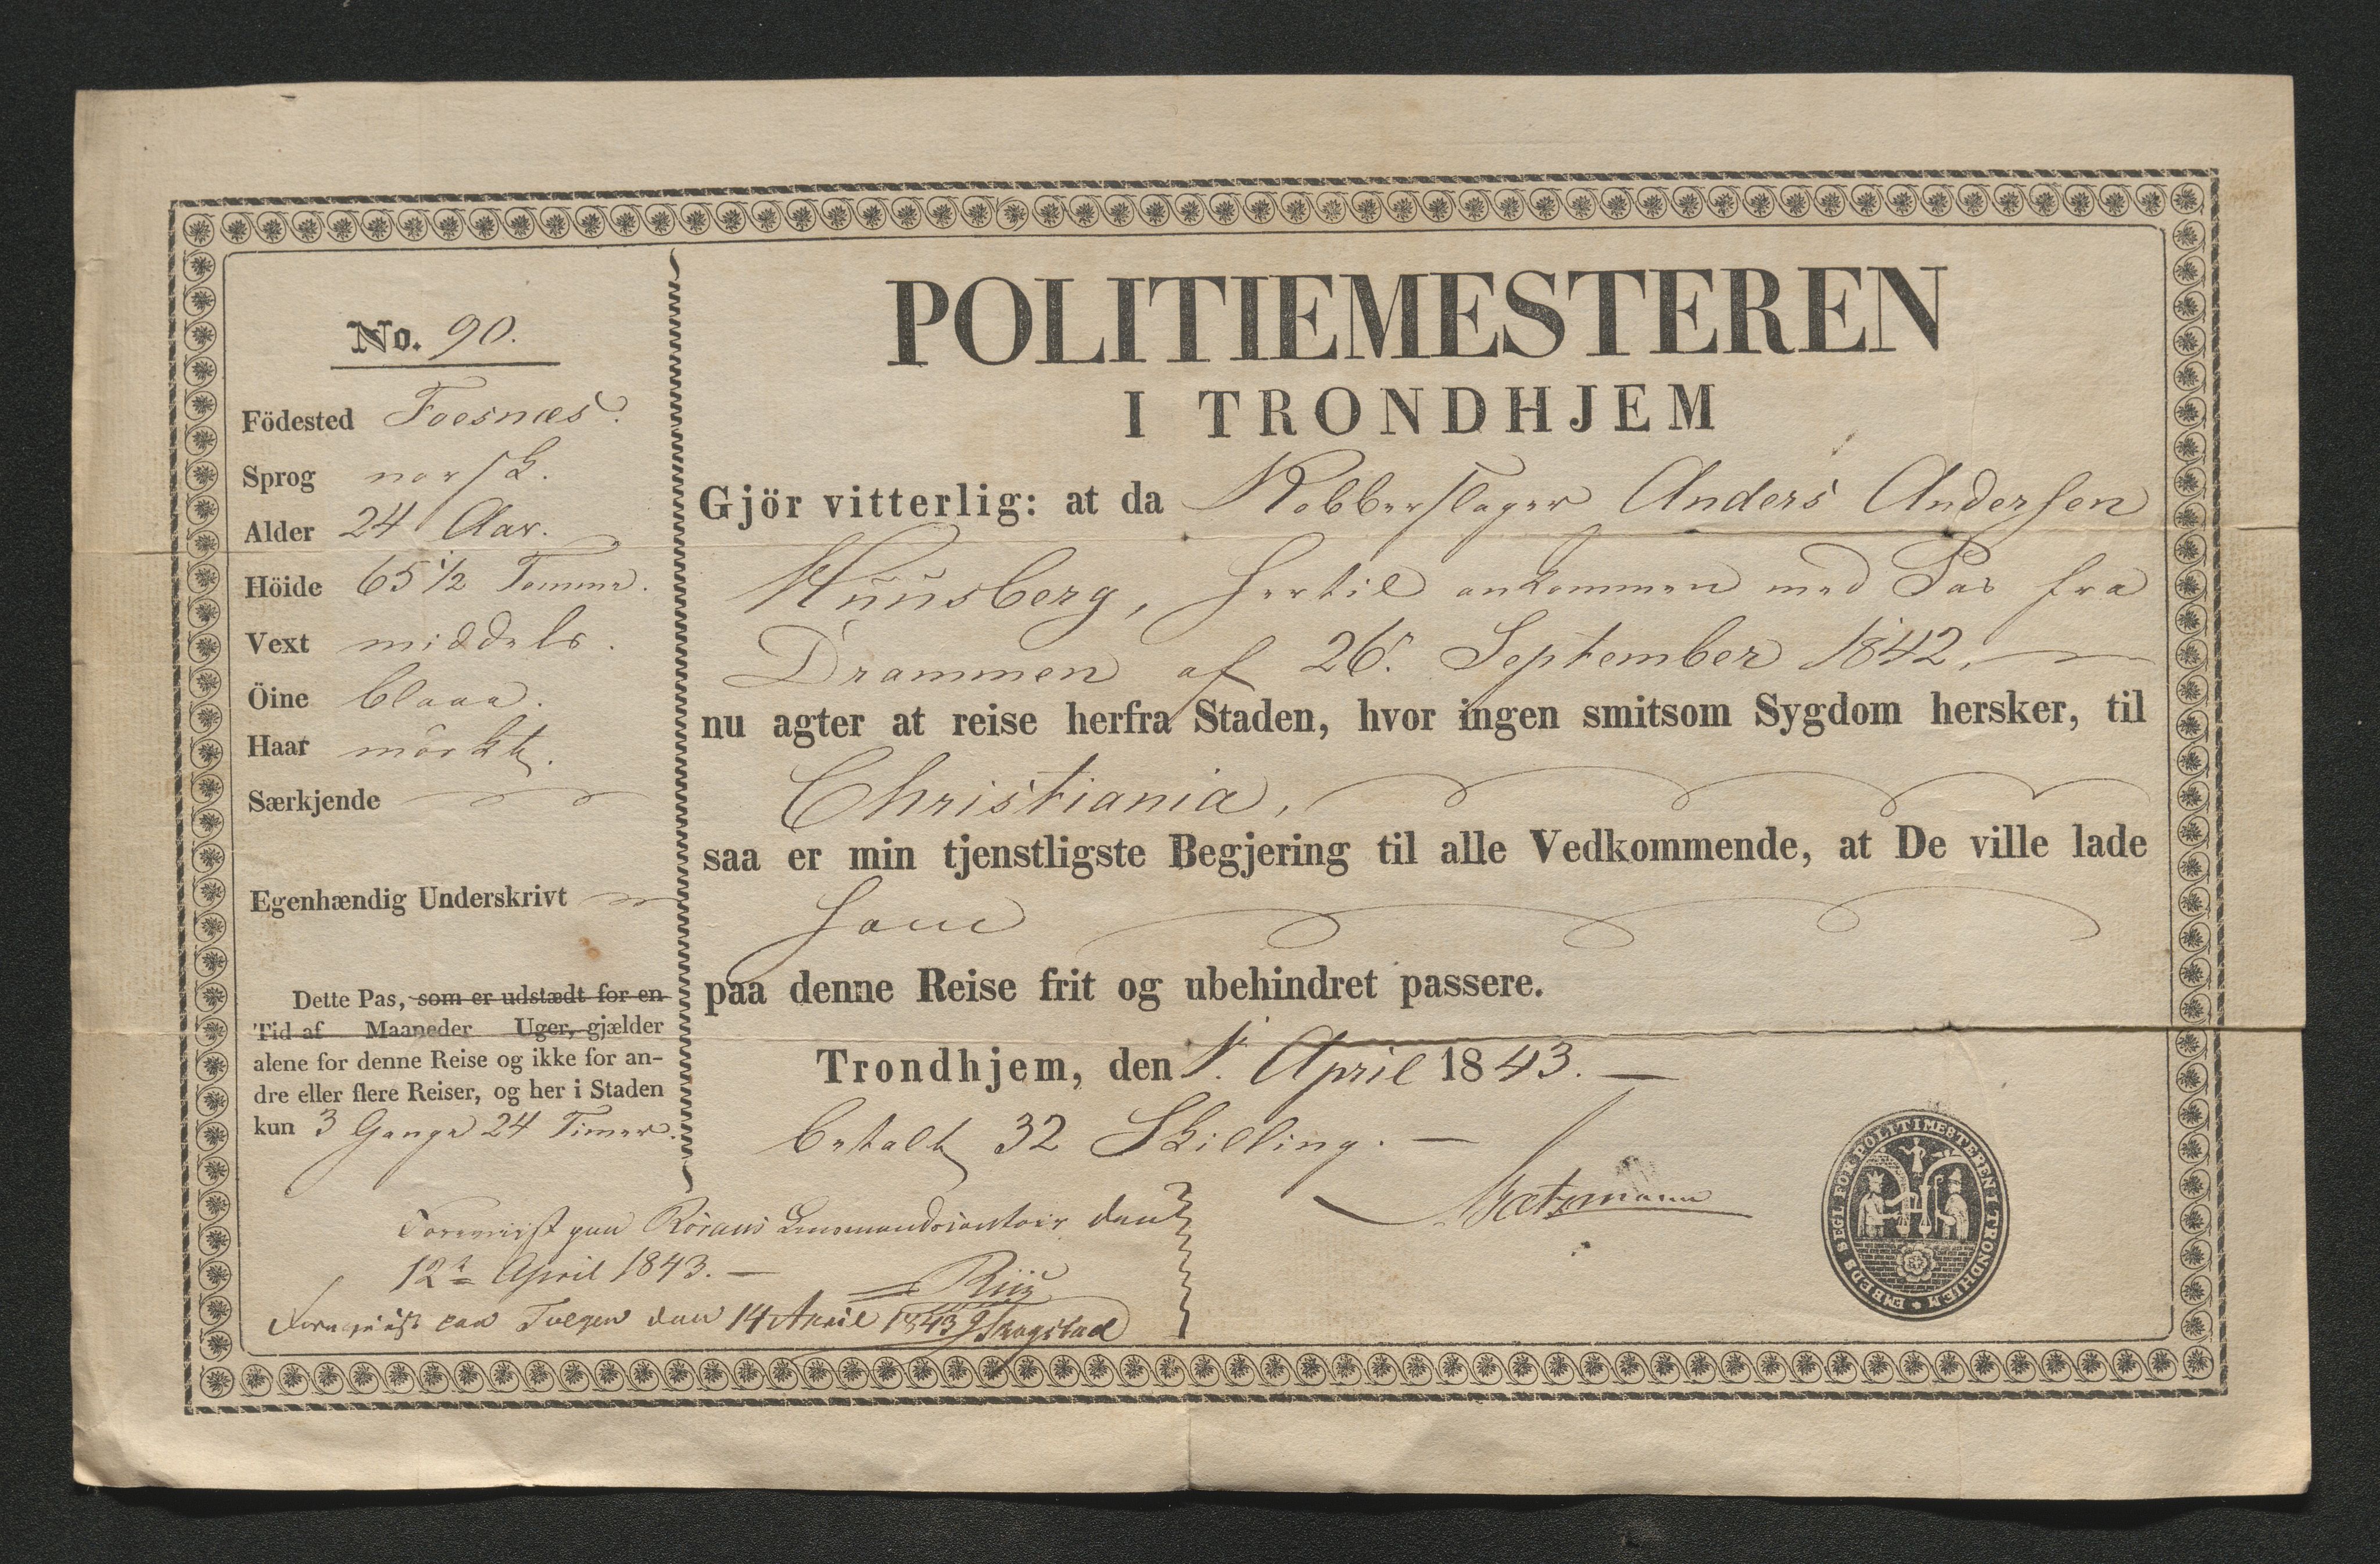 No. 90.
Födested Foesnæs.
Sprog norsk.
Alder 24 Aar.
Höide 65 1/2 Tomme.
Vext middels.
Öine blaaa.
Haar mörkt.
Særkjende
Egenhændig Underskrivt
Dette Pas, som er udstædt for en
Tid af Maaneder Uger, gjælder
alene for denne Reise og ikke for an-
dre eller flere Reiser, og her i Staden
kun 3 Gange 24 Timer.
POLITIEMESTEREN
I TRONDHJEM
Gjör vitterlig: at da Kobberslager Anders Andersen
Huusberg, hertil ankommen med Pas fra
Drammen af 26. September 1842,
nu agter at reise herfra Staden, hvor ingen smitsom Sygdom hersker, til
Christiania,
saa er min tjenstligste Begjering til alle Vedkommende, at De ville lade
ham
paa denne Reise frit og ubehindret passere.
Trondhjem, den 1. April 1843.
betalt 32 Skilling.
Foreviist paa Röraas Lensmandscontoir den
12te April 1843.
Foreviist paa Tolgen den 14 April 1843 Skogstad
EMBEDS SEGL FOR POLITIMESTEREN I TRONDHJEM